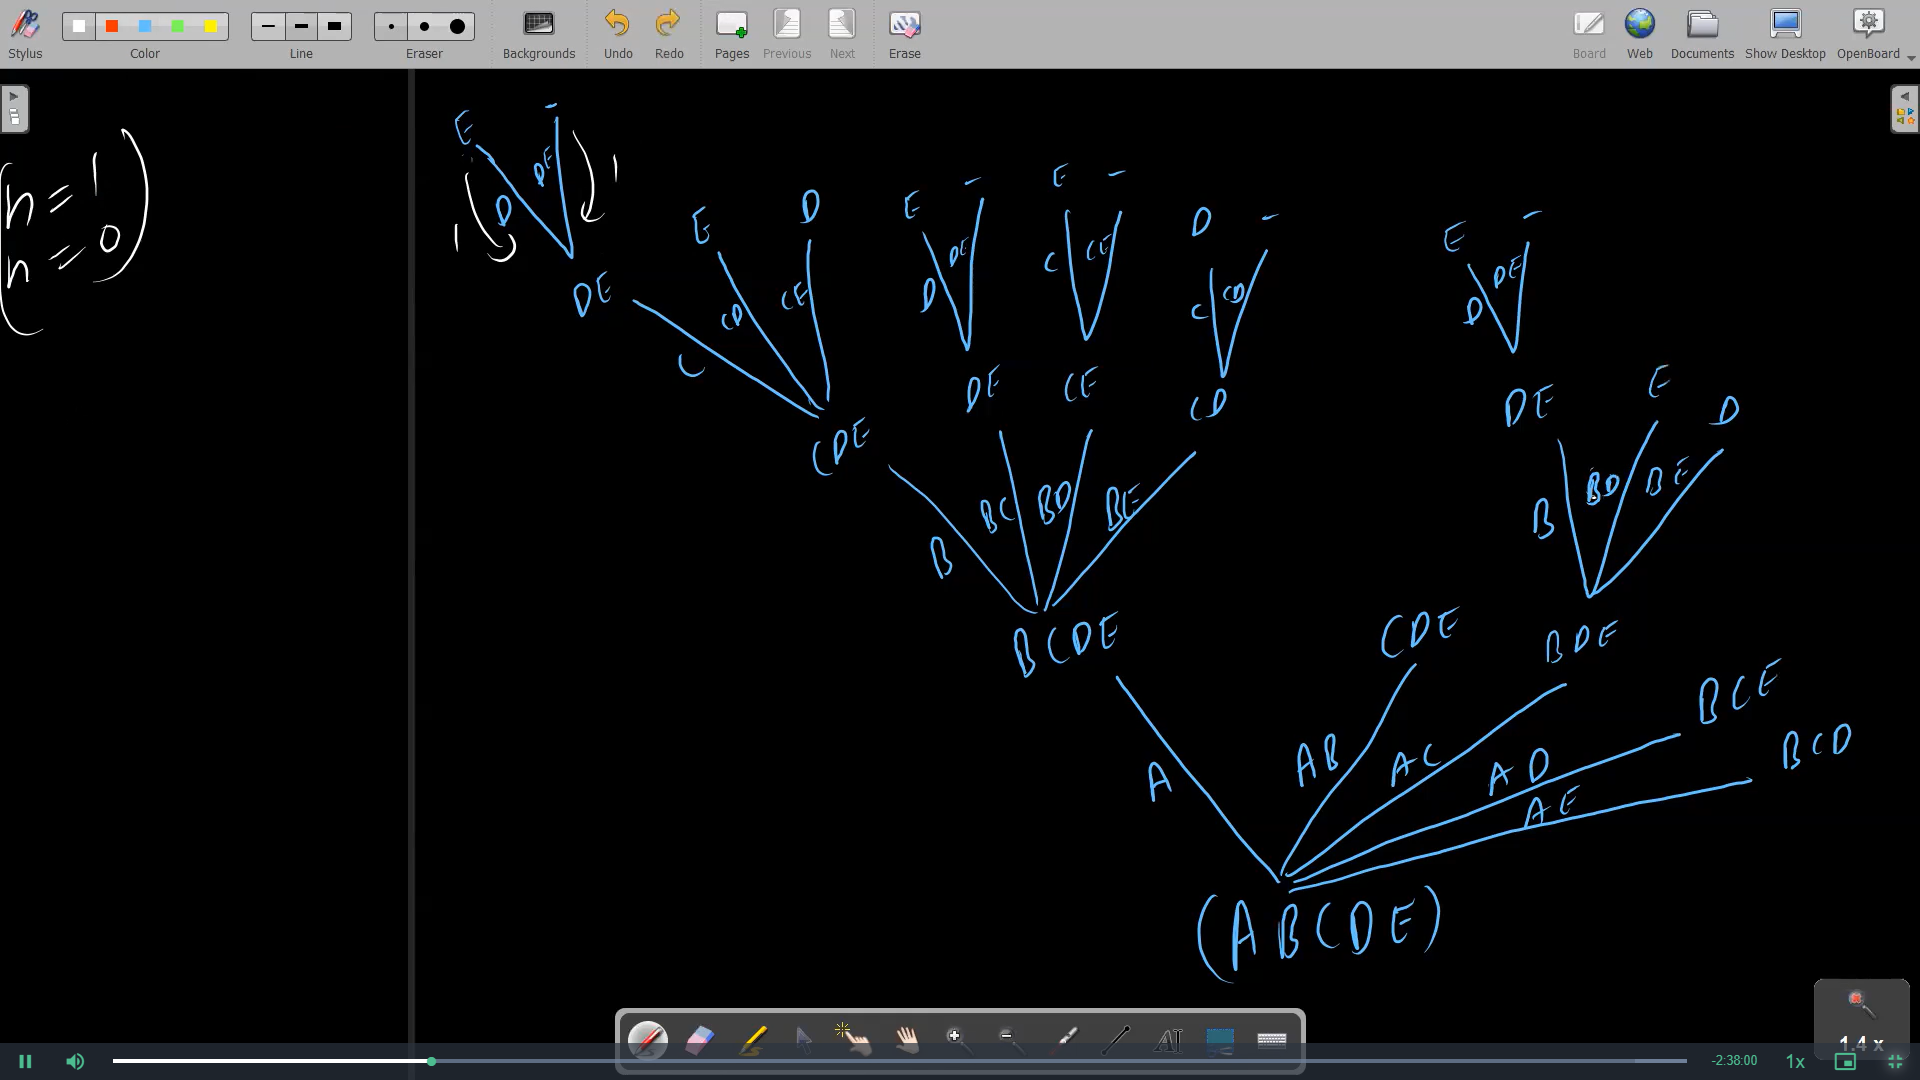 Stylus Color Line Eraser Backgrounds Undo Redo Pages Previous Next Erase Board Web Documents Show Desktop OpenBoard
n = 1
n = 0
E -
D DE
1 1
DE
E D
C CD CE
CDE
E - E - D -
D DE C CE C CD
DE CE CD
B BC BD BE
BCDE
E -
D DE
DE E D
B BD BE
CDE BDE BCE BCD
A AB AC AD AE
(ABCDE)
1.4 x
-2:38:00 1x